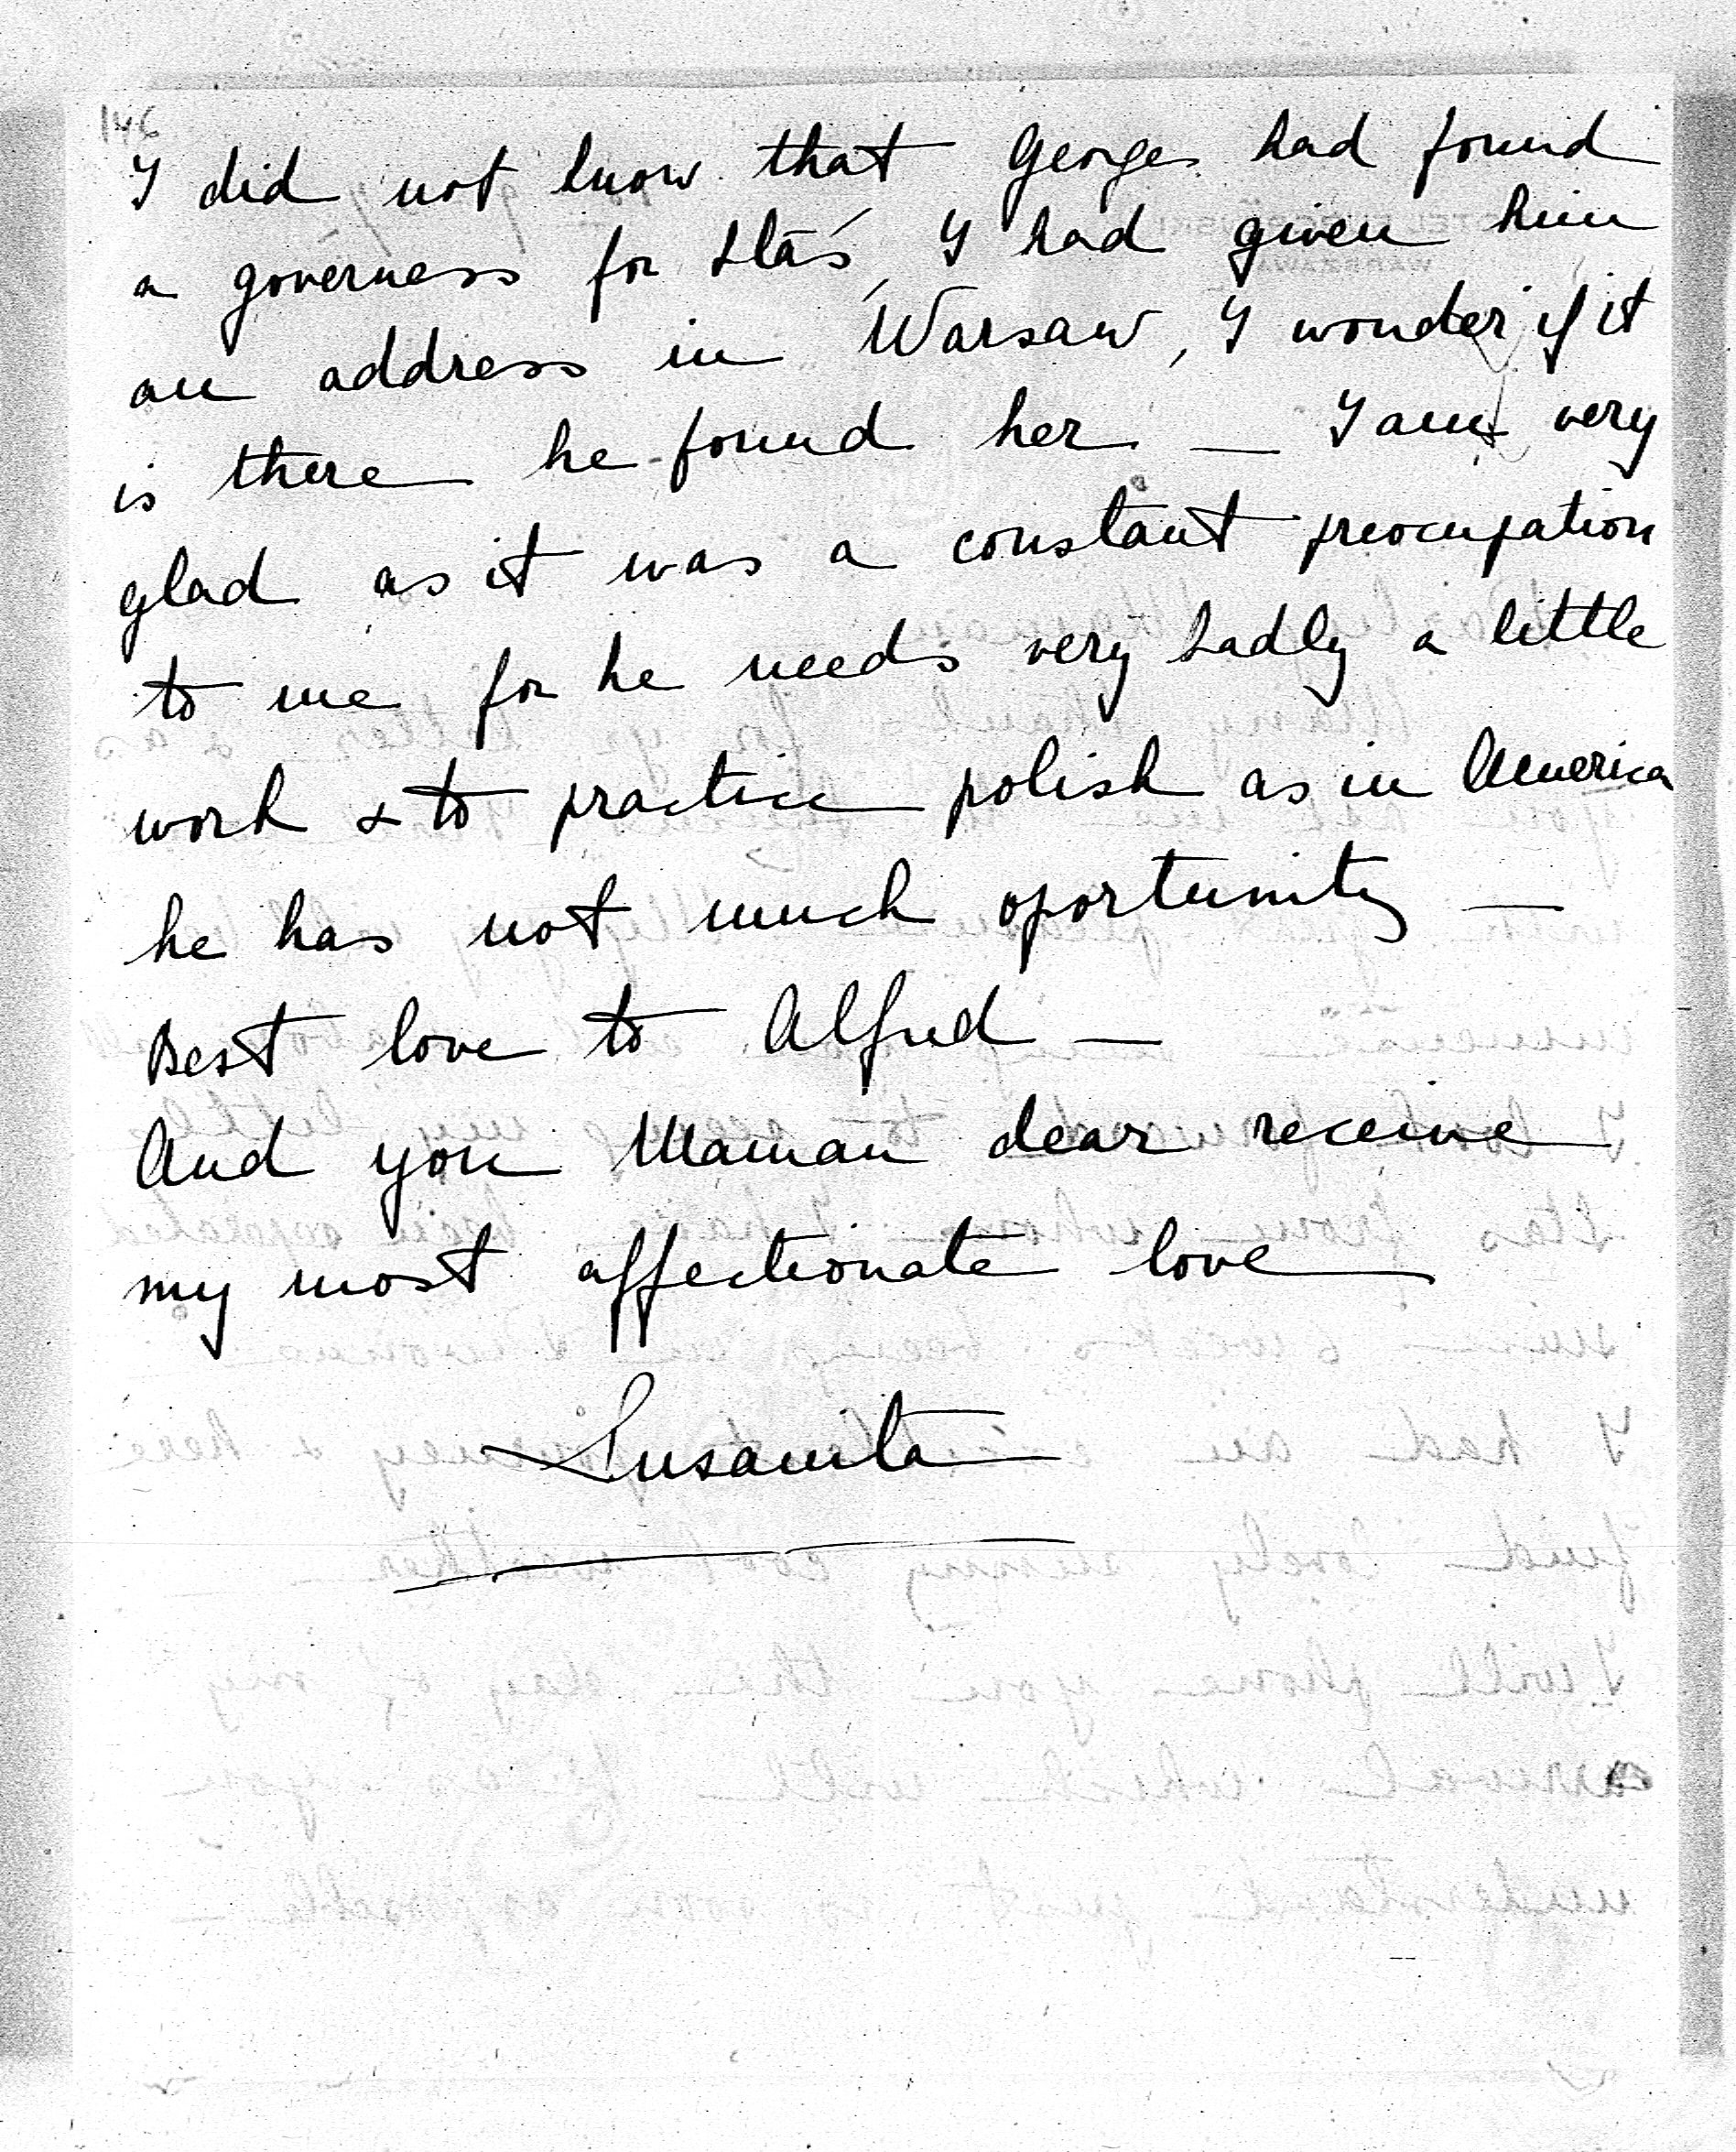 146
I did not know that George had found
a governess for Staś, I had given him
an address in Warsaw, I wonder if it
is there he found her — I am very
glad as it was a constant preocupation
to me for he needs very badly a little
work & to practice polish as in America
he has not much oportunity —
Best love to Alfred —
And you Maman dear receive
my most affectionate love
Susanita